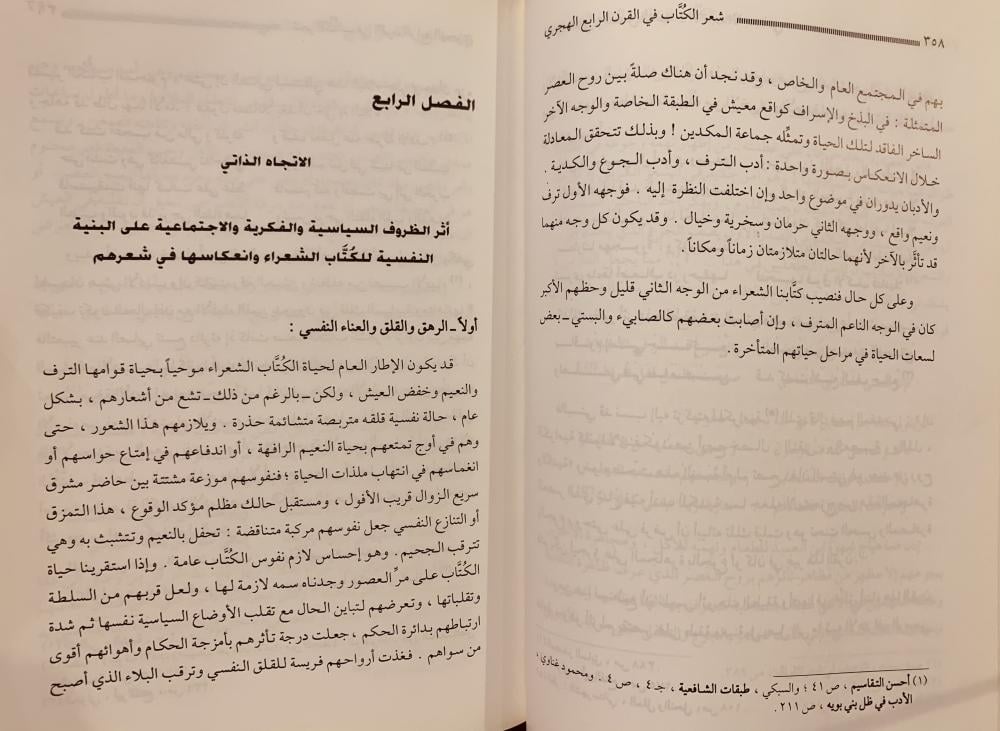 ٣٥٨
شعر الكُتَّاب في القرن الرابع الهجري
بهم في المجتمع العام والخاص ، وقد نجد أن هناك صلةً بين روح العصر
المتمثلة : في البذخ والإسراف كواقع معيش في الطبقة الخاصة والوجه الآخر
الساخر الفاقد لتلك الحياة وتمثِّله جماعة المكدين ! وبذلك تتحقق المعادلة
خلال الانعكاس بصورة واحدة : أدب الترف ، وأدب الجوع والكدية .
والأدبان يدوران في موضوع واحد وإن اختلفت النظرة إليه . فوجهه الأول ترف
ونعيم واقع ، ووجهه الثاني حرمان وسخرية وخيال . وقد يكون كل وجه منهما
قد تأثَّر بالآخر لأنهما حالتان متلازمتان زماناً ومكاناً .
وعلى كل حال فنصيب كتَّابنا الشعراء من الوجه الثاني قليل وحظهم الأكبر
كان في الوجه الناعم المترف ، وإن أصابت بعضهم كالصابيء والبستي ــ بعض
لسعات الحياة في مراحل حياتهم المتأخرة .
(١) أحسن التقاسيم ، ص ٤١ ؛ والسبكي ، طبقات الشافعية ، جـ ٤ ، ص ٤ . ومحمود غناوي ،
الأدب في ظل بني بويه ، ص ٢١١ .
الفصل الرابع
الاتجاه الذاتي
أثر الظروف السياسية والفكرية والاجتماعية على البنية
النفسية للكُتَّاب الشعراء وانعكاسها في شعرهم
أولاً ــ الرهق والقلق والعناء النفسي :
قد يكون الإطار العام لحياة الكُتَّاب الشعراء موحياً بحياة قوامها الترف
والنعيم وخفض العيش ، ولكن ــ بالرغم من ذلك ــ تشع من أشعارهم ، بشكل
عام ، حالة نفسية قلقه متربصة متشائمة حذرة . ويلازمهم هذا الشعور ، حتى
وهم في أوج تمتعهم بحياة النعيم الرافهة ، أو اندفاعهم في إمتاع حواسهم أو
انغماسهم في انتهاب ملذات الحياة ؛ فنفوسهم موزعة مشتتة بين حاضر مشرق
سريع الزوال قريب الأفول ، ومستقبل حالك مظلم مؤكد الوقوع ، هذا التمزق
أو التنازع النفسي جعل نفوسهم مركبة متناقضة : تحفل بالنعيم وتتشبث به وهي
تترقب الجحيم . وهو إحساس لازم نفوس الكُتَّاب عامة . وإذا استقرينا حياة
الكُتَّاب على مرِّ العصور وجدناه سمه لازمة لها ، ولعل قربهم من السلطة
وتقلباتها ، وتعرضهم لتباين الحال مع تقلب الأوضاع السياسية نفسها ثم شدة
ارتباطهم بدائرة الحكم ، جعلت درجة تأثرهم بأمزجة الحكام وأهوائهم أقوى
من سواهم . فغذت أرواحهم فريسة للقلق النفسي وترقب البلاء الذي أصبح